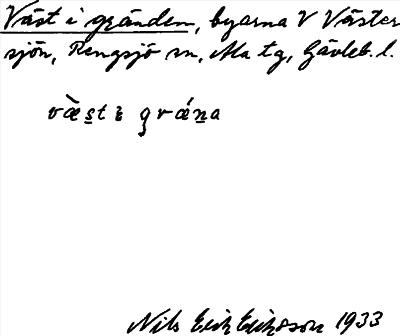 Väst i gränden, byarna V Väster
sjön, Rengsjö sn, Ala tg, Gävleb. l.
væ̀st ɩ grǽna
Nils Erik Eriksson 1933